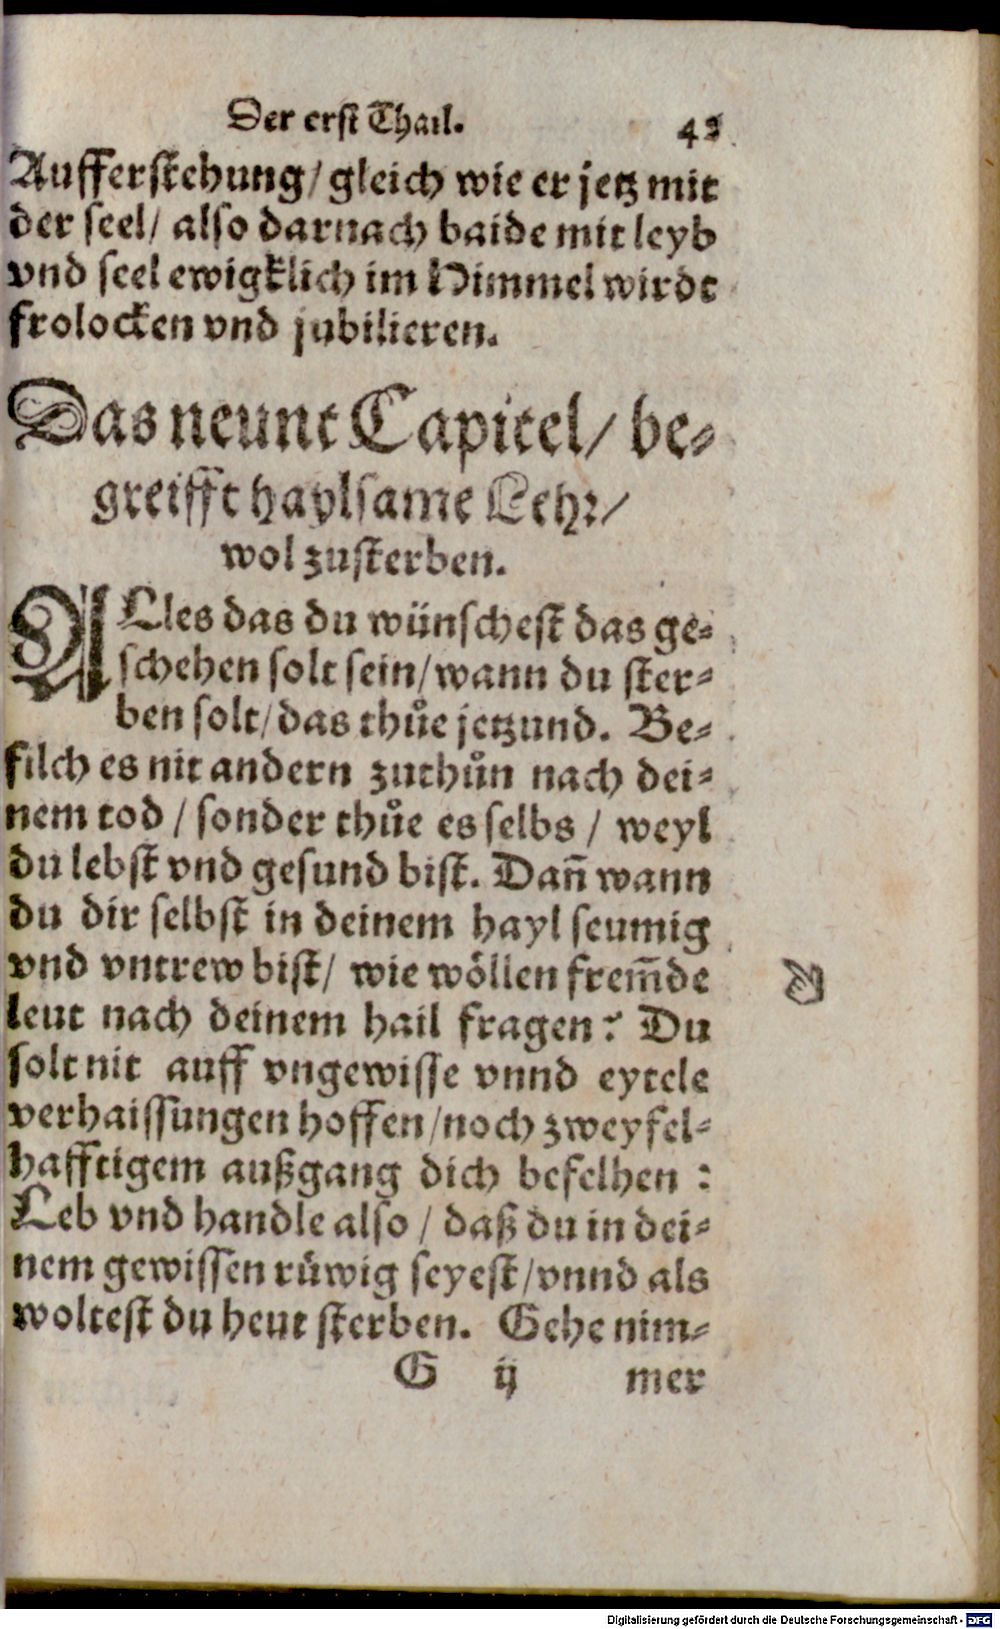 Der erst Thail. 42
Aufferstehung/ gleich wie er jetz mit
der seel/ also darnach baide mit leyb
vnd seel ewigklich im Himmel wirdt
frolocken vnd jubilieren.
Das neunt Capitel/ be-
greifft haylsame Lehr/
wol zusterben.
ALles das du wünschest das ge-
schehen solt sein/ wann du ster-
ben solt/ das thůe jetzund. Be-
filch es nit andern zuthůn nach dei-
nem tod / sonder thůe es selbs / weyl
du lebst vnd gesund bist. Dañ wann
du dir selbst in deinem hayl seumig
vnd vntrew bist/ wie wöllen frem̃de
leut nach deinem hail fragen? Du
solt nit auff vngewisse vnnd eytele
verhaissungen hoffen/ noch zweyfel-
hafftigem außgang dich befelhen:
Leb vnd handle also / daß du in dei-
nem gewissen růwig seyest/ vnnd als
woltest du heut sterben. Gehe nim-
G ij mer
Digitalisierung gefördert durch die Deutsche Forschungsgemeinschaft - DFG